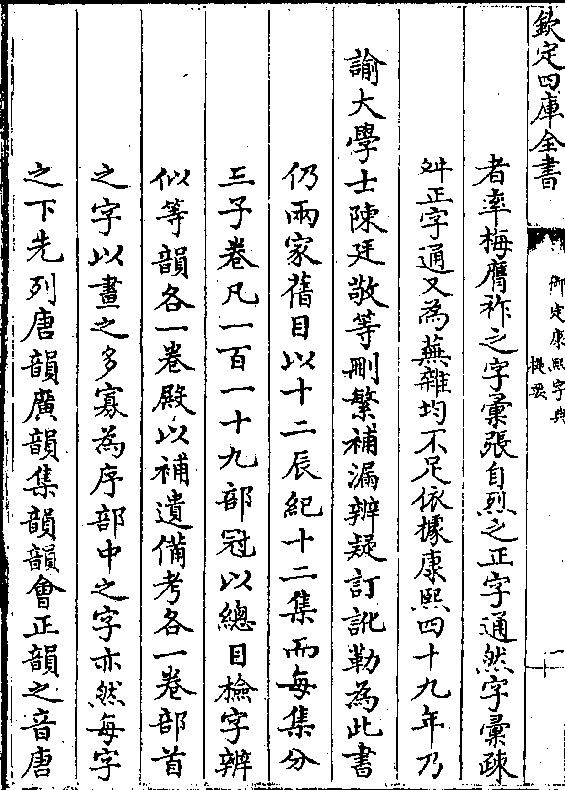 欽定四庫全書
御定康熙字典
提要
一
者率梅膺祚之字彙張自烈之正字通然字彙疎
舛正字通又為蕪雜均不足依據康熙四十九年乃
諭大學士陳廷敬等刪繁補漏辨疑訂訛勒為此書
仍兩家舊目以十二辰紀十二集而每集分
三子卷凡一百一十九部冠以總目檢字辨
似等韻各一卷殿以補遺備考各一卷部首
之字以畫之多寡為序部中之字亦然每字
之下先列唐韻廣韻集韻韻會正韻之音唐